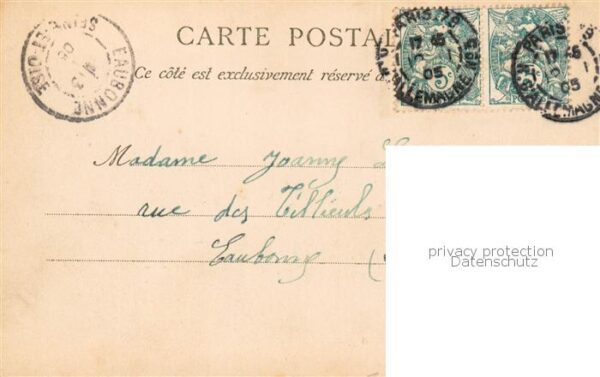 CARTE POSTAL
Ce côté est exclusivement réservé à
EAUBONNE
SEINE-ET-OISE
PARIS-79
05
R. D'ALLEMAGNE
PARIS
05
R. D'ALLEMAGNE
Madame Joanny
rue des Tilleuls
Eaubonne (
privacy protection
Datenschutz